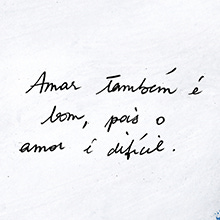 Amar também é
bom, pois o
amor é difícil.